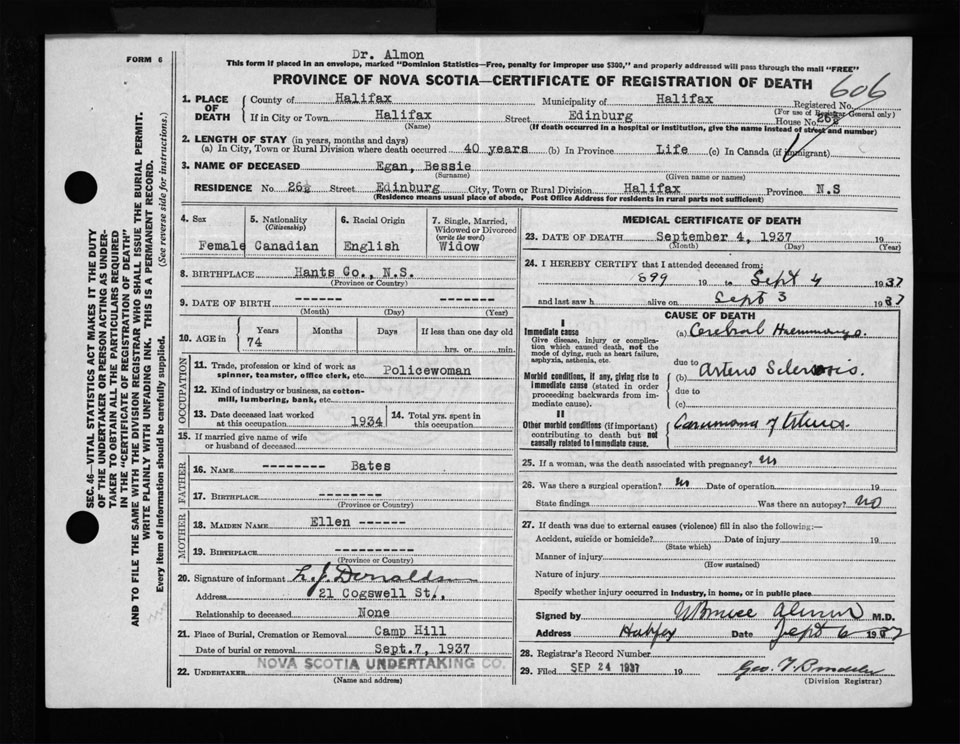 Dr. Almon
FORM 6
This form if placed in an envelope, marked "Dominion Statistics—Free, penalty for improper use $300," and properly addressed will pass through the mail "FREE"
PROVINCE OF NOVA SCOTIA—CERTIFICATE OF REGISTRATION OF DEATH
606
1. PLACE OF DEATH
County of Halifax Municipality of Halifax Registered No.
(For use of Registrar General only)
If in City or Town Halifax Street Edinburg House No. 26½
(Name) (If death occurred in a hospital or institution, give the name instead of street and number)
2. LENGTH OF STAY (in years, months and days)
(a) In City, Town or Rural Division where death occurred 40 years (b) In Province Life (c) In Canada (if immigrant)
3. NAME OF DECEASED Egan, Bessie
(Surname) (Given name or names)
RESIDENCE No. 26½ Street Edinburg City, Town or Rural Division Halifax Province N.S
(Residence means usual place of abode. Post Office Address for residents in rural parts not sufficient)
4. Sex
Female
5. Nationality
(Citizenship)
Canadian
6. Racial Origin
English
7. Single, Married, Widowed or Divorced
(write the word)
Widow
8. BIRTHPLACE Hants Co., N.S.
(Province or Country)
9. DATE OF BIRTH -------
(Month) (Day) (Year)
10. AGE in
Years Months Days If less than one day old
74 hrs. or min.
OCCUPATION
11. Trade, profession or kind of work as spinner, teamster, office clerk, etc. Policewoman
12. Kind of industry or business, as cotton-mill, lumbering, bank, etc.
13. Date deceased last worked at this occupation 1934
14. Total yrs. spent in this occupation
15. If married give name of wife or husband of deceased
FATHER
16. NAME --------- Bates
17. BIRTHPLACE ---------
(Province or Country)
MOTHER
18. MAIDEN NAME Ellen ------
19. BIRTHPLACE -----------
(Province or Country)
20. Signature of informant L. J. Donalds
Address 21 Cogswell St,.
Relationship to deceased None
21. Place of Burial, Cremation or Removal Camp Hill
Date of burial or removal Sept.7, 1937
22. UNDERTAKER NOVA SCOTIA UNDERTAKING CO.
(Name and address)
MEDICAL CERTIFICATE OF DEATH
23. DATE OF DEATH September 4, 1937 19
(Month) (Day) (Year)
24. I HEREBY CERTIFY that I attended deceased from:
19 to Sept 4 1937
and last saw h alive on Sept 3 1937
CAUSE OF DEATH
I
Immediate cause
Give disease, injury or complication which caused death, not the mode of dying, such as heart failure, asphyxia, asthenia, etc.
(a) Cerebral Haemmorage
due to
Morbid conditions, if any, giving rise to immediate cause (stated in order proceeding backwards from immediate cause).
(b) Arterio Sclerosis.
due to
(c)
II
Other morbid conditions (if important) contributing to death but not causally related to immediate cause.
Carcinoma of Uterus.
25. If a woman, was the death associated with pregnancy? No
26. Was there a surgical operation? No Date of operation 19
State findings Was there an autopsy? NO
27. If death was due to external causes (violence) fill in also the following:—
Accident, suicide or homicide? Date of injury 19
(State which)
Manner of injury
(How sustained)
Nature of injury
Specify whether injury occurred in industry, in home, or in public place
Signed by Almon M.D.
Address Halifax Date Sept 6 1937
28. Registrar's Record Number
29. Filed SEP 24 1937 19 Geo. T.
(Division Registrar)
SEC. 46—VITAL STATISTICS ACT MAKES IT THE DUTY
OF THE UNDERTAKER OR PERSON ACTING AS UNDER-
TAKER TO OBTAIN ALL THE PARTICULARS REQUIRED
IN THE "CERTIFICATE OF REGISTRATION OF DEATH"
AND TO FILE THE SAME WITH THE DIVISION REGISTRAR WHO SHALL ISSUE THE BURIAL PERMIT.
WRITE PLAINLY WITH UNFADING INK. THIS IS A PERMANENT RECORD.
Every item of information should be carefully supplied. (See reverse side for instructions.)